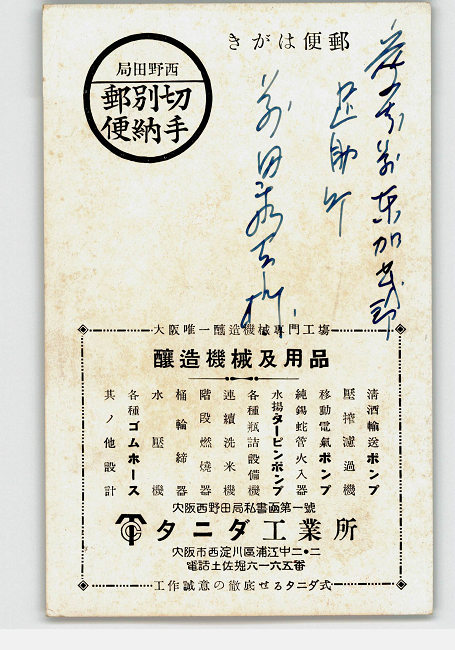 郵便はがき
西野田局
切手
別納
郵便
大阪唯一釀造機械專門工場
釀造機械及用品
清酒輸送ポンプ
壓搾濾過機
移動電氣ポンプ
純錫蛇管火入器
水揚タービンポンプ
各種瓶詰設備機
連續洗米機
階段燃燒器
桶輪締器
水壓機
各種ゴムホース
其ノ他設計
大阪西野田局私書函第一號
タニダ工業所
大阪市西淀川區浦江中二・二
電話土佐堀六一六五番
工作誠意の徹底せるタニダ式